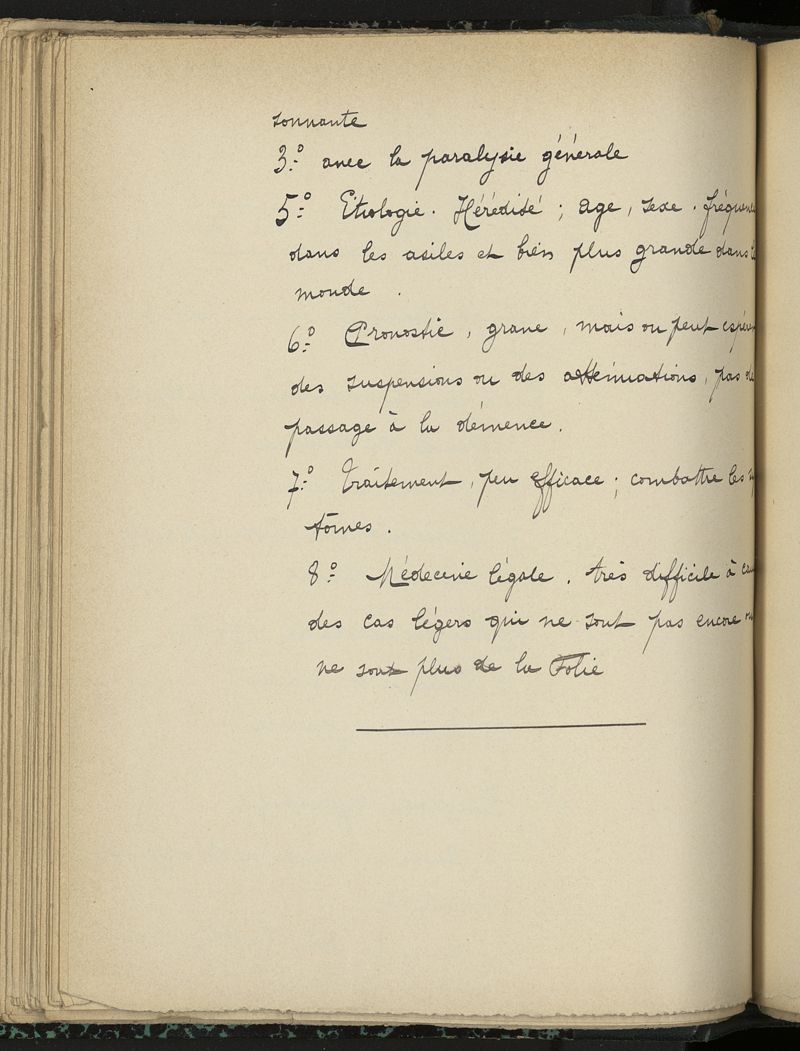 sonnante
3.º avec la paralysie générale
5.º Etiologie. Hérédité ; age, sexe. fréquen
dans les asiles et bien plus grande dans
monde .
6.º Pronostic, grave, mais on peut espér
des suspensions ou des atténuations, pas de
passage à la démence.
7.º Traitement, peu efficace ; combattre les
tômes .
8.º Médecine légale. très difficile à cau
des cas légers qui ne sont pas encore ou
ne sont plus de la Folie